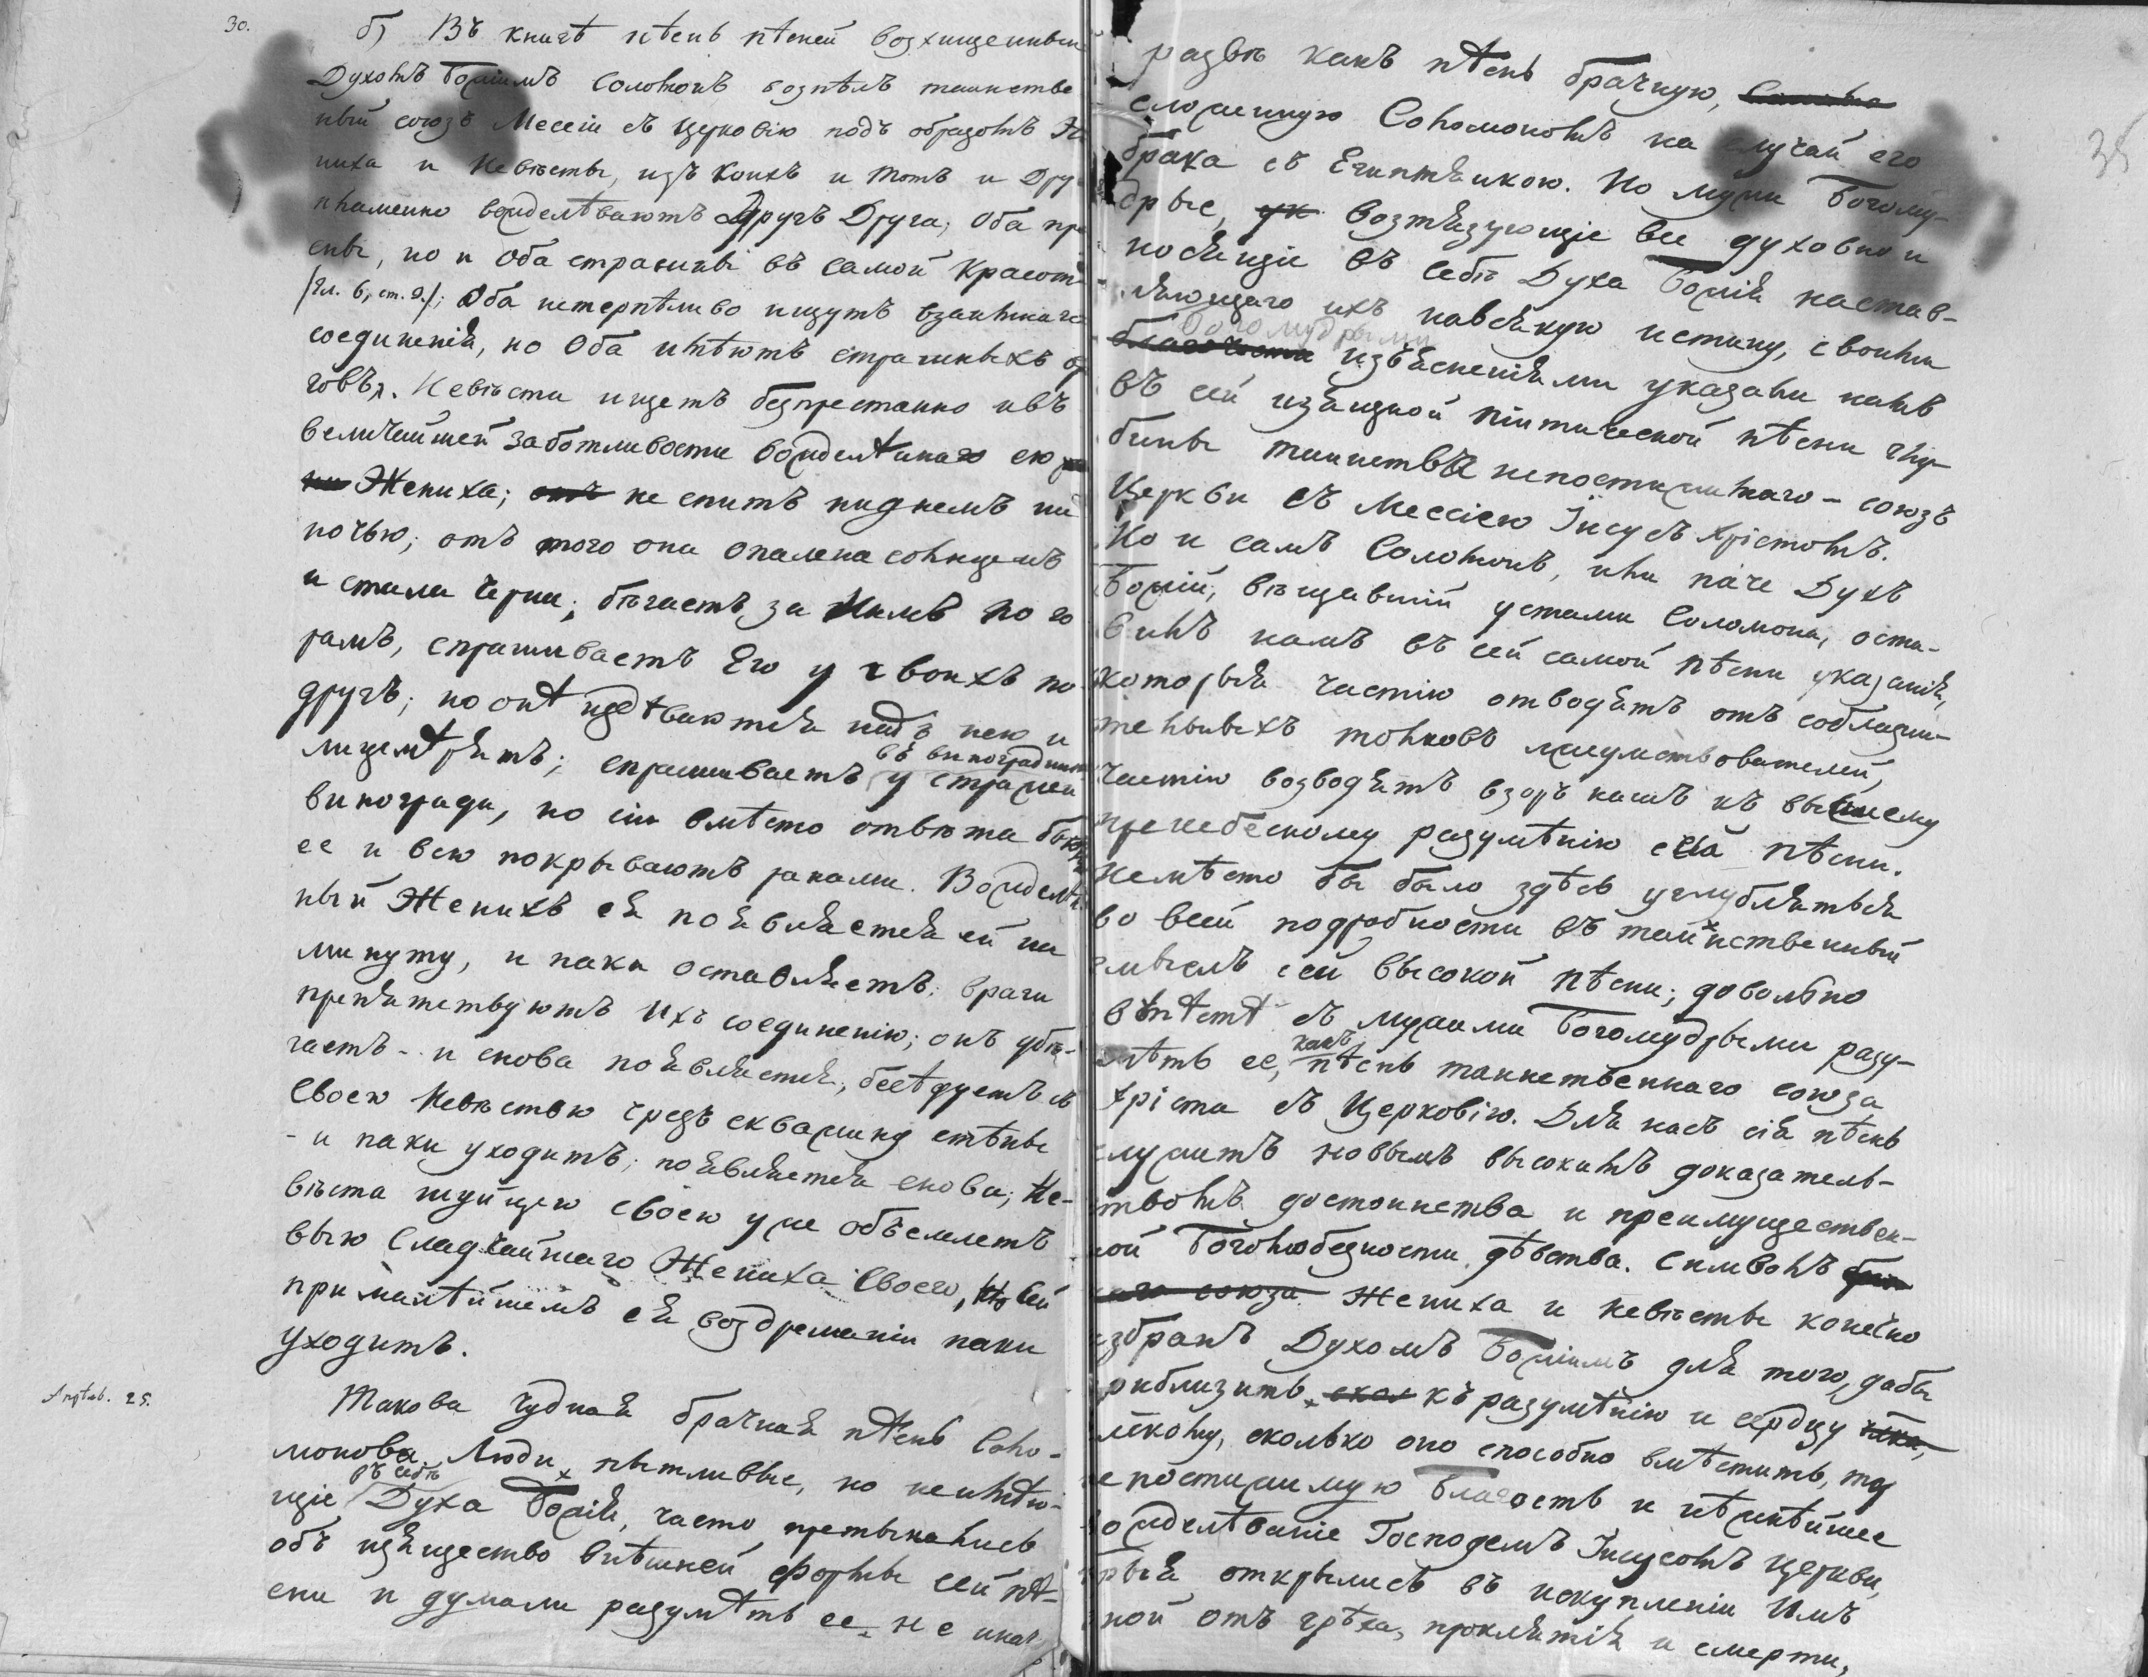 30.
б) Въ книгѣ пѣснь пѣсней восхищенный
Духомъ Божіимъ Соломонъ воспѣлъ таинстве
ный союзъ Мессіи съ Церковію подъ образомъ Же
ниха и Невѣсты, изъ коихъ и тотъ и дру
пламенно вожделѣваютъ Другъ Друга; Оба пре
сны, но и Оба страшны въ самой красотѣ
/Гл. 6, ст. 9./; Оба нетерпѣливо ищутъ взаимнаго
соединенія, но Оба имѣютъ страшныхъ вр
говъ. Невѣста ищетъ безпрестанно и въ
величайшей заботливости вожделѣннаго ею
Жениха; не спитъ ни днемъ ни
ночью; отъ того она опалена солнцемъ
и стала черна; бѣгаетъ за Нимъ по го
рамъ, спрашиваетъ Его у своихъ по
другъ; но онѣ издѣваются надъ нею и
лицемѣрятъ; спрашиваетъ у стражей
въ виноградник
винограда, но сіи вмѣсто отвѣта бьютъ
ее и всю покрываютъ ранами. Вожделѣ
ный Женихъ ея появляется ей на
минуту, и паки оставляетъ; враги
препятствуютъ Ихъ соединенію; онъ убѣ-
гаетъ - и снова появляется, бесѣдуетъ съ
Своею Невѣстою чрезъ скважину стѣны
- и паки уходитъ; появляется снова; Не-
вѣста шуйцею своею уже объемлетъ
выю Сладчайшаго Жениха Своего, Но Сей
при малѣйшемъ ея воздреманіи паки
уходитъ.
Такова чудная брачная пѣснь Соло-
монова. Люди пытливые, но неимѣю-
въ себѣ
щіе Духа Божія, часто претыкались
объ изящество внѣшней формы сей пѣ-
сни и думали разумѣть ее не инач
35
развѣ какъ пѣснь брачную,
сложенную Соломономъ на случай его
брака съ Египтянкою. Но мужи Богому-
дрые, возтязующіе вся духовно и
носящіе въ себѣ Духа Божія настав-
ляющаго ихъ на всякую истину, своими
Богомудрыми
изъясненіями указали намъ
въ сей изящной піитической пѣсни глу-
бины таинства непостижимаго - союзъ
Церкви съ Мессіею Іисусъ Христомъ.
Но и самъ Соломонъ, или паче Духъ
Божій, вѣщавшій устами Соломона, оста-
вилъ намъ въ сей самой пѣсни указанія,
которыя частію отводятъ отъ соблазни-
тельныхъ толковъ лжеумствователей,
частію возводятъ взоръ нашъ къ высшему
пренебесному разумѣнію сея пѣсни.
Не мѣсто бы было здѣсь углубляться
во всей подробности въ таинственный
смыслъ сей высокой пѣсни; довольно
вмѣстѣ съ мужами Богомудрыми разу-
какъ
мѣть ее, пѣснь таинственнаго союза
Христа съ Церковію. Для насъ сія пѣснь
служитъ новымъ высокимъ доказатель-
твомъ достоинства и преимуществен-
ной Боголюбезности дѣвства. Символъ
Жениха и Невѣсты конечно
избранъ Духомъ Божіимъ для того, дабы
приблизить къ разумѣнію и сердцу
сколько оно способно вмѣстить, ту
непостижимую Благость и нѣжнѣйшее
вожделѣваніе Господемъ Іисусомъ Церкви,
открылись въ искупленіи Имъ
ной отъ грѣха, проклятія и смерти,